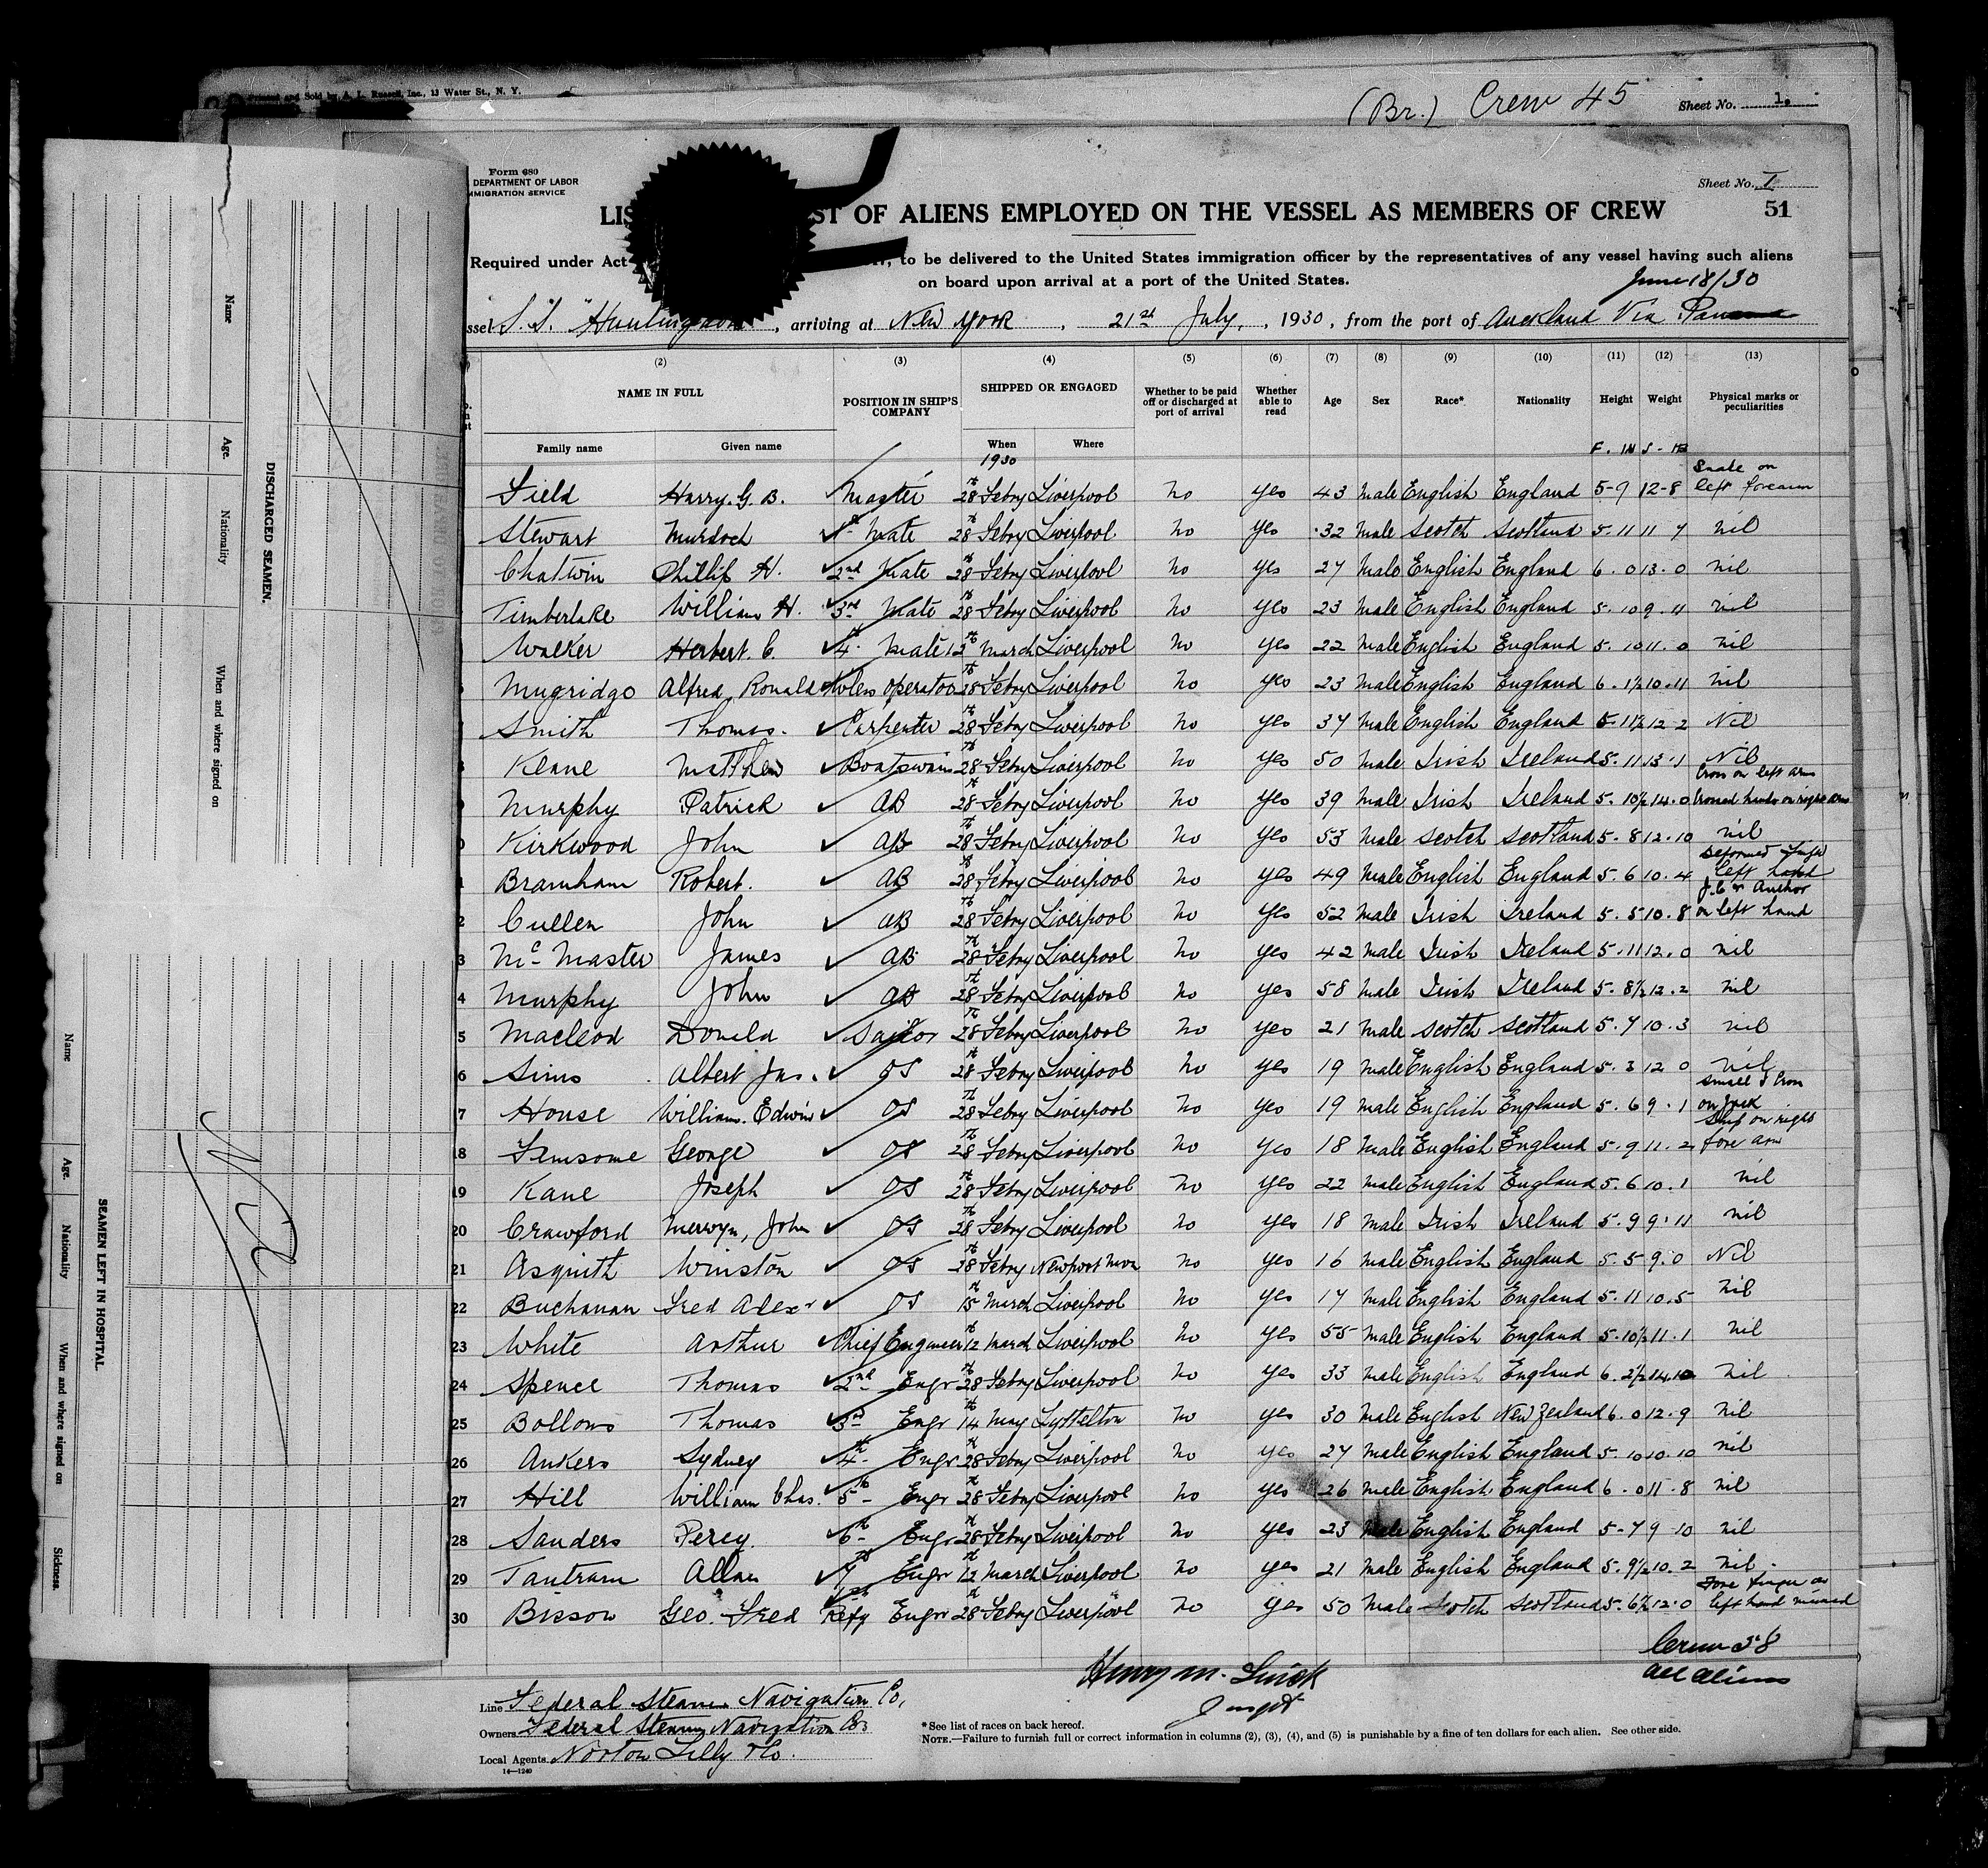 Printed and Sold by A. L. Russell, Inc., 13 Water St., N. Y.
(Br.) Crew 45 Sheet No. 1.
Form 680
DEPARTMENT OF LABOR
IMMIGRATION SERVICE
Sheet No. I
LIS ST OF ALIENS EMPLOYED ON THE VESSEL AS MEMBERS OF CREW 51
Required under Act , to be delivered to the United States immigration officer by the representatives of any vessel having such aliens
on board upon arrival at a port of the United States.
June 18/30
ssel S.S. "Huntingdon , arriving at New York , 21st July, , 1930 , from the port of Auckland Via Panama
(2) (3) (4) (5) (6) (7) (8) (9) (10) (11) (12) (13)
NAME IN FULL POSITION IN SHIP'S COMPANY SHIPPED OR ENGAGED Whether to be paid off or discharged at port of arrival Whether able to read Age Sex Race* Nationality Height Weight Physical marks or peculiarities
Family name Given name When Where
1930 F. IN S - lb
Field Harry. G. B. Master 28th Febry Liverpool No yes 43 male English England 5-9 12-8 Snake on left forearm
Stewart Murdoch 1st Mate 28th Febry Liverpool No yes 32 male Scotch Scotland 5.11 11 7 nil
Chatwin Phillip H. 2nd Mate 28th Febry Liverpool No yes 27 Male English England 6.0 13.0 nil
Timberlake William H. 3rd Mate 28th Febry Liverpool No yes 23 male English England 5.10 9.11 nil
Walker Herbert. C. 4th Mate 12th March Liverpool No yes 22 male English England 5.10 11.0 nil
Mugridge Alfred, Ronald W/less operator 28th Febry Liverpool No yes 23 male English England 6.1½ 10.11 nil
Smith Thomas. Carpenter 28th Febry Liverpool No yes 37 male English England 5.11½ 12 2 Nil
Keane Matthew Boatswain 28th Febry Liverpool No yes 50 male Irish Ireland 5.11 13.1 Nil
Murphy Patrick AB 28th Febry Liverpool No yes 39 male Irish Ireland 5.10½ 14.0 Cross on left arm Crossed hands on right arm
Kirkwood John AB 28th Febry Liverpool No yes 53 male Scotch Scotland 5.8 12.10 nil
Bramham Robert. AB 28th Febry Liverpool No yes 49 male English England 5.6 10.4 Deformed finger left hand
2 Cullen John AB 28th Febry Liverpool No yes 52 male Irish Ireland 5.5 10.8 J.C & Anchor on left hand
3 McMaster James AB 28th Febry Liverpool No yes 42 male Irish Ireland 5.11 12.0 nil
4 Murphy John AB 28th Febry Liverpool No yes 58 male Irish Ireland 5.8½ 12.2 nil
5 Macleod Donald Sailor 28th Febry Liverpool No yes 21 male Scotch Scotland 5.7 10.3 nil
6 Sims Albert Jas. OS 28th Febry Liverpool No yes 19 male English England 5.3 12 0 nil
7 House William. Edwin OS 28th Febry Liverpool No yes 19 male English England 5.6 9.1 small
18 George OS 28th Febry Liverpool No yes 18 male English England 5.9 11.2 Ship on right fore arm
19 Kane Joseph OS 28th Febry Liverpool No yes 22 male English England 5.6 10.1 nil
20 Crawford Merwyn, John OS 28th Febry Liverpool No yes 18 male Irish Ireland 5.9 9.11 nil
21 Asquith Winston OS 28th Febry Newport Mon No yes 16 male English England 5.5 9.0 Nil
22 Buchanan Fred Alexr OS 15th March Liverpool No yes 17 male English England 5.11 10.5 nil
23 White Arthur Chief Engineer 12th March Liverpool No yes 55 male English England 5.10½ 11.1 nil
24 Spence Thomas 2nd Engr 28th Febry Liverpool No yes 33 male English England 6.2½ 14.10 nil
25 Bollows Thomas 3rd Engr 14th May Lyttelton No yes 30 male English New Zealand 6.0 12.9 nil
26 Ankers Sydney 4th Engr 28th Febry Liverpool No yes 27 male English England 5.10 10.10 nil
27 Hill William Chas. 5th Engr 28th Febry Liverpool No yes 26 male English England 6.0 11.8 nil
28 Sanders Percy. 6th Engr 28th Febry Liverpool No yes 23 male English England 5-7 9-10 nil
29 Tantram Allan 7th Engr 12th March Liverpool No yes 21 male English England 5.9½ 10.2 nil.
30 Bisson Geo. Fred 1st Refg Engr 28th Febry Liverpool No yes 50 male Scotch Scotland 5.6½ 12.0 Fore finger on left hand missing
Crew 58
all aliens
Henry M.
Inspt
Line Federal Steam Navigation Co,
Owners Federal Steam Navigation Co
Local Agents Norton Lilly & Co.
14—1240
*See list of races on back hereof.
NOTE.—Failure to furnish full or correct information in columns (2), (3), (4), and (5) is punishable by a fine of ten dollars for each alien. See other side.
DISCHARGED SEAMEN.
Name
Age.
Nationality
When and where signed on
SEAMEN LEFT IN HOSPITAL.
Name
Age.
Nationality
When and where signed on
Sickness.